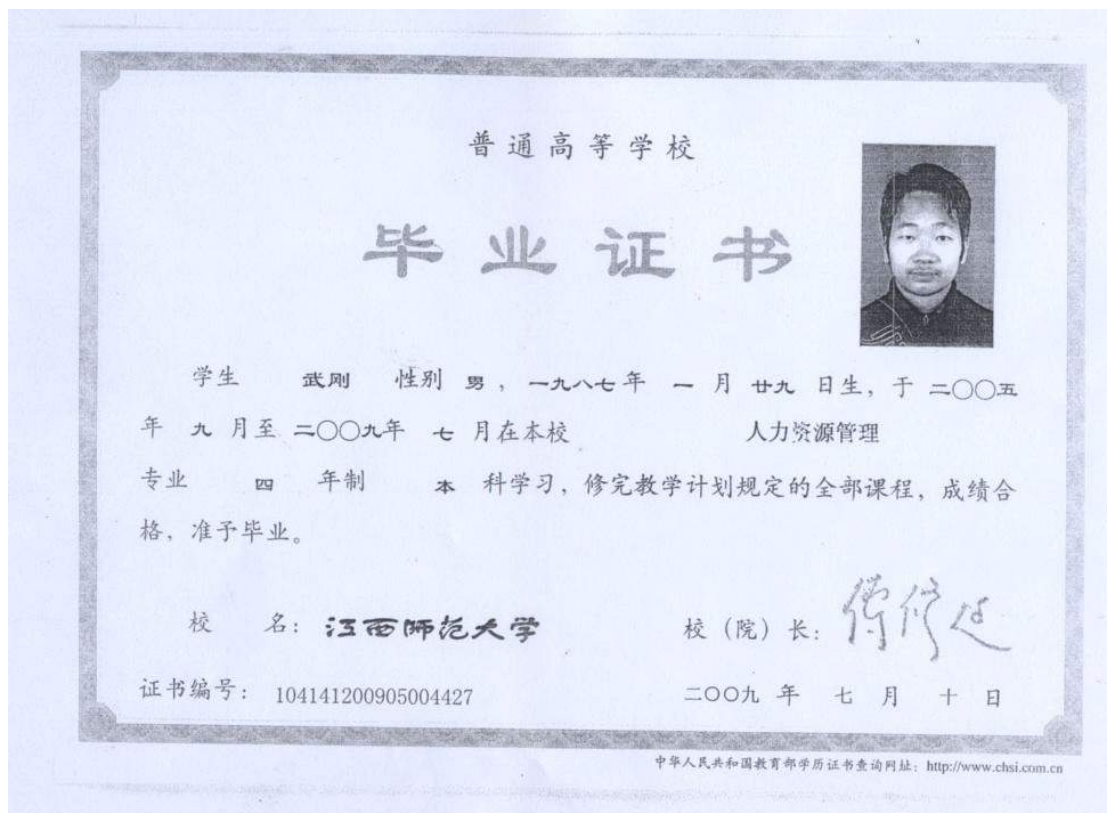 普通高等学校
毕业证书
学生 武刚 性别 男，一九八七年 一 月 廿九 日生，于 二〇〇五
年 九 月至 二〇〇九年 七 月在本校 人力资源管理
专业 四 年制 本 科学习，修完教学计划规定的全部课程，成绩合
格，准予毕业。
校 名：江西师范大学 校（院）长：傅修延
证书编号：104141200905004427 二〇〇九 年 七 月 十 日
中华人民共和国教育部学历证书查询网址：http://www.chsi.com.cn